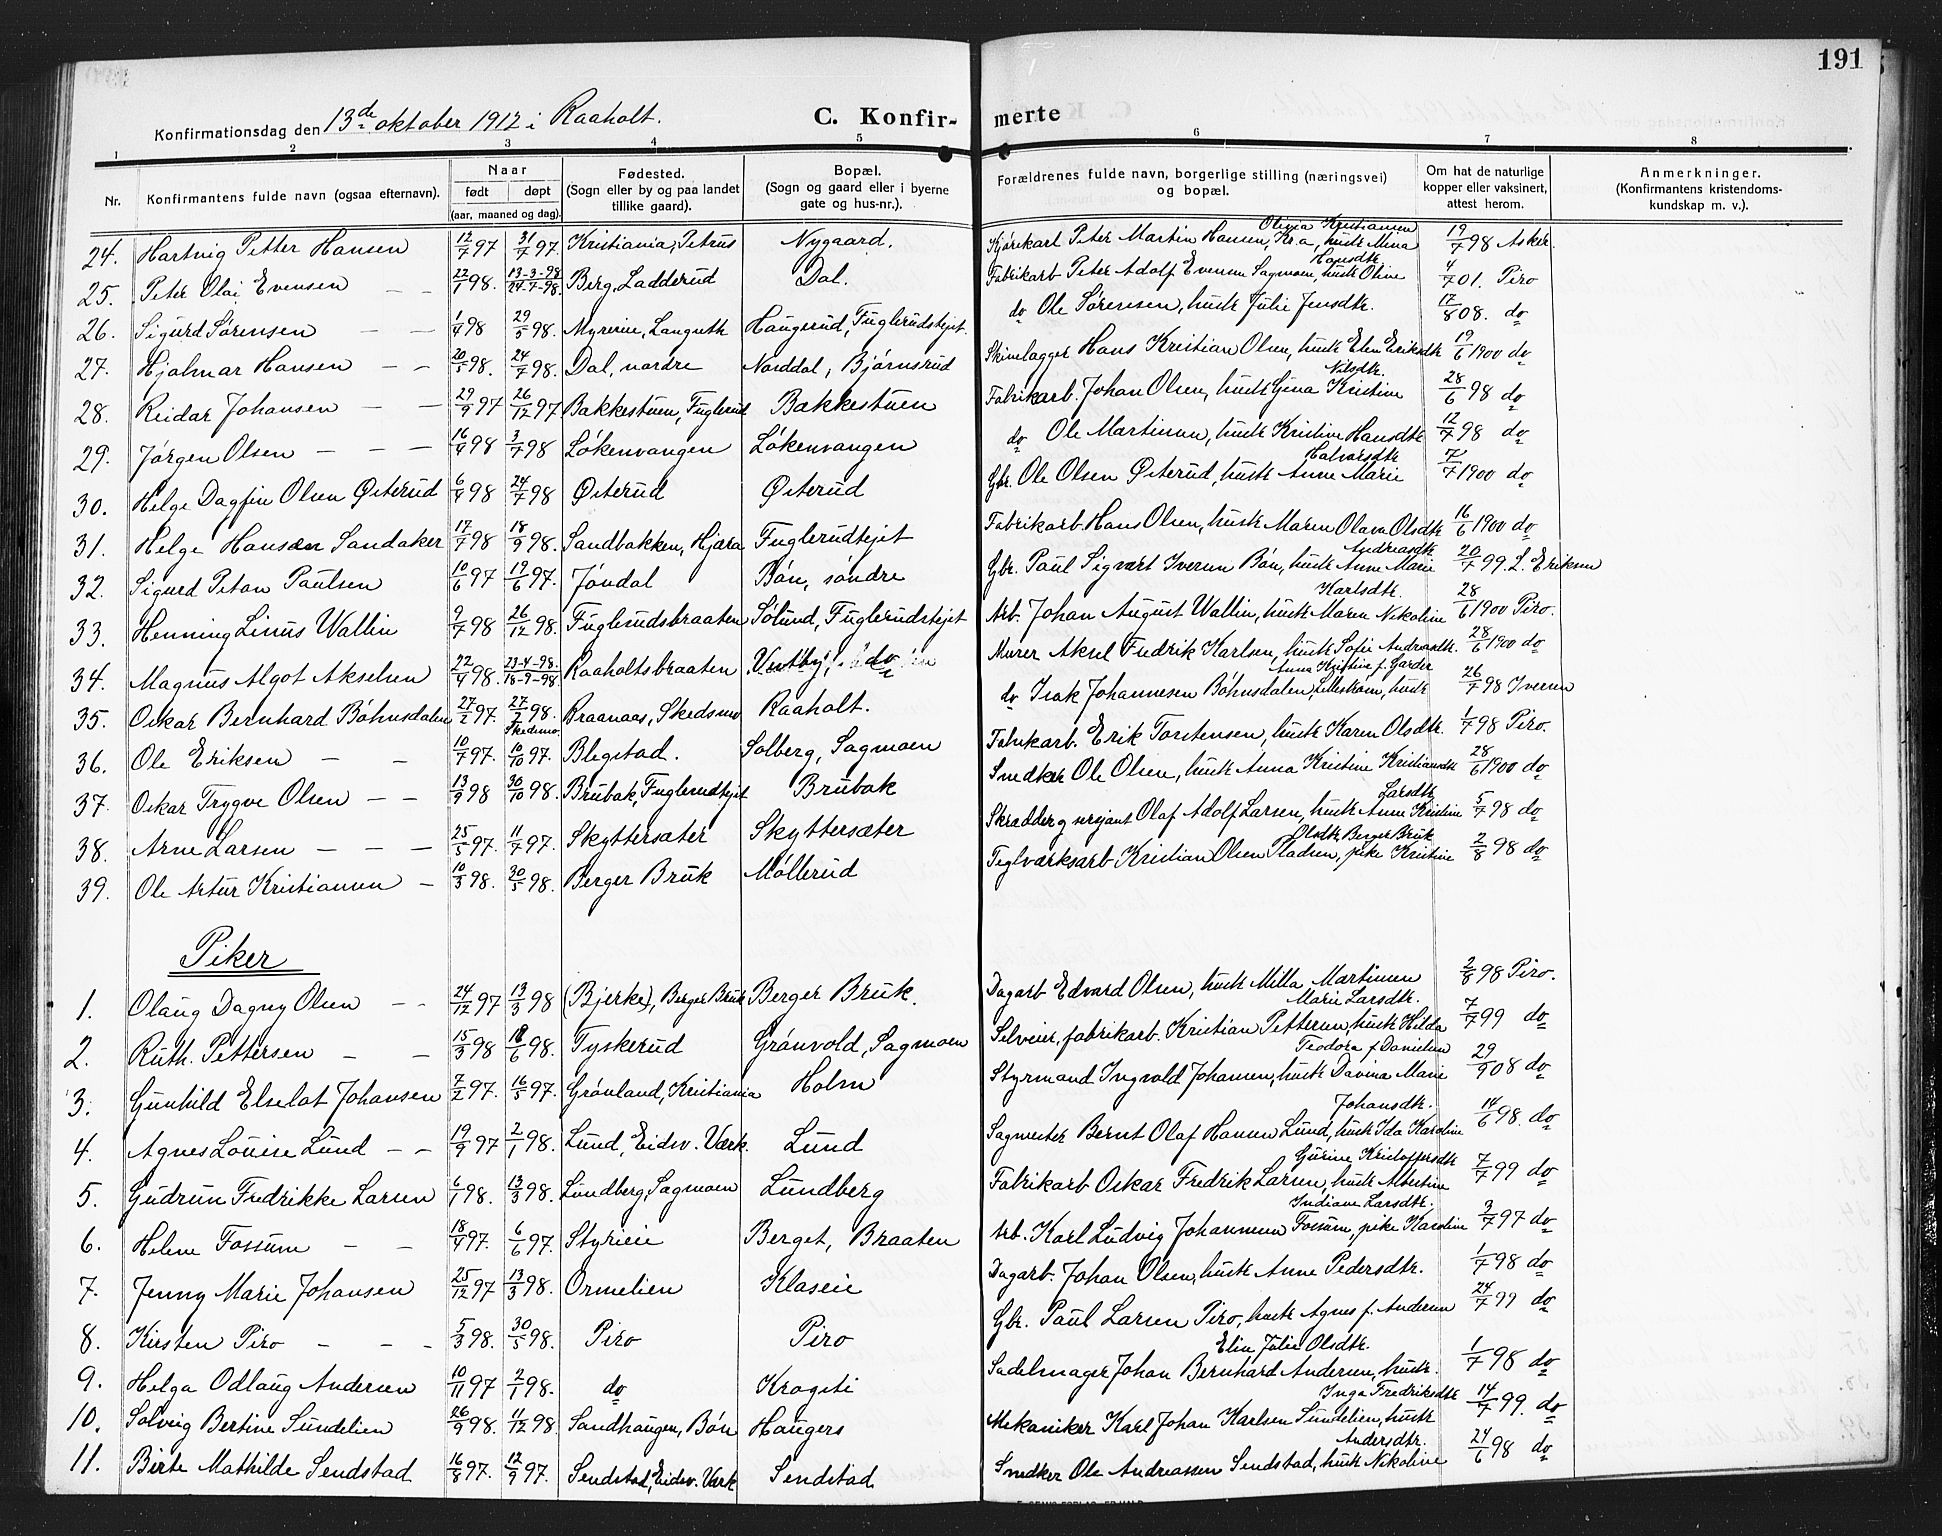 191
Konfirmationsdag den 13de oktober 1912 i Raaholt.
C. Konfirmerte
1 2 3 4 5 6 7 8
Nr. Konfirmantens fulde navn (ogsaa efternavn). Naar født døpt (aar, maaned og dag). Fødested. (Sogn eller by og paa landet tillike gaard). Bopæl. (Sogn og gaard eller i byerne gate og hus-nr.). Forældrenes fulde navn, borgerlige stilling (næringsvei) og bopæl. Om hat de naturlige kopper eller vaksinert, attest herom. Anmerkninger. (Konfirmantens kristendoms-kundskap m. v.).
24. Hartvig Petter Hansen 12/7 97 31/7 97 Kristiania, Petrus Nygaard. Kjørekarl Peter Martin Hansen, Kr.a, hustr Mina Olivia Kristiansen 19/7 98 Asker.
25. Peter Olai Evensen — — 22/1 98. 13-3-98 24-7-98. Berg, Ladderud Dal. Fabrikarb Peter Adolf Evensen Sagmoen, hustr Oline Hansdtr. 4/7 01. Piro
26. Sigurd Sørensen — — 1/4 98 29/5 98. Myrerne, Languth Haugerud, Fuglerudstejet. do Ole Sørensen, hustr Julie Jensdtr. 17/8 08. do
27. Hjalmar Hansen — — 20/5 98. 24/7 98. Dal, nordre Norddal, Bjørnsrud Skinnlagger Hans Kristian Olsen, hustr Elen Eriksdtr 19/6 1900 do
28. Reidar Johansen — — 29/9 97 26/12 97 Bakkestuen, Fuglerud Bakkestuen Fabrikarb. Johan Olsen, hustr Gina Kristine Nilsdtr. 28/6 98 do
29. Jørgen Olsen — — — 16/4 98 3/7 98 Løkenvangen Løkenvangen do Ole Martinsen, hustr Kristine Hansdtr 12/7 98 do
30. Helge Dagfin Olsen Østerud 6/4 98 24/7 98 Østerud Østerud Gbr. Ole Olsen Østerud, hustr Anne Marie Halvorsdtr 7/7 1900 do
31. Helge Hansen Sandaker 17/7 98 18/9 98. Sandbakken, Hjæra Fuglerudtejet Fabrikarb. Hans Olsen, hustr Maren Olava Olsdtr 16/6 1900 do
32. Sigurd Peton Paulsen 10/6 97 19/6 97. Jøndal Bøn, søndre Gbr. Paul Sigvart Iversen Bøn, hustr Anne Marie Andreasdtr. 20/7 99. L. Eriksen
33. Henning Linus Wallin 9/7 98 26/12 98. Fuglerudsbraaten Sølund, Fuglerudstejet Arb. Johan August Wallin, hustr Maren Nikoline Karlsdtr. 28/6 1900 Piro.
34. Magnus Algot Akselsen 22/4 98. 23-4-98. 18-9-98. Raaholtsbraaten Vestby, do Murer Aksel Fredrik Karlsen, hustr Sofie Andreasdtr. 28/6 1900 do
35. Oskar Bernhard Bøhnsdalen 27/2 97. 27/2 98. Skedsmo. Braanaas, Skedsmo Raaholt. do Isak Johannesen Bøhnsdalen, Lillestrøm, hustr Anna Kristine f. Garder 26/7 98 Iversen
36. Ole Eriksen — — 10/7 97. 10/10 97. Blegstad. Solberg, Sagmoen Fabrikarb. Erik Torstensen, hustr Karen Olsdtr. 1/7 98 Piro.
37. Oskar Trygve Olsen — — 13/9 98 30/10 98. Brubak, Fuglerudtejet Brubak Snedker Ole Olsen, hustr Anna Kristine Kristiansdtr 28/6 1900 do
38. Arne Larsen — — — 25/5 97. 11/7 97. Skyttersæter Skyttersæter Skrædder og sersjant Olaf Adolf Larsen, hustr Anne Kristine Larsdtr 5/7 98 do
39. Ole Artur Kristiansen — 10/3 98. 30/5 98. Berger Bruk Møllerud Teglværksarb Kristian Olsen Pladsen, pike Kristine Olsdtr, Berger Bruk 2/8 98 do
Piker
1. Olaug Dagny Olsen — — 24/12 97 13/3 98 (Bjerke), Berger Bruk Berger Bruk. Dagarb Edvard Olsen, hustr Milla Martinsen 2/8 98 Piro.
2. Ruth Pettersen — — 15/3 98 18/6 98. Tyskerud Grønvold, Sagmoen Selveier, fabrikarb. Kristian Pettersen, hustr Hilda Marie Larsdtr. 7/7 99 do
3. Gunhild Elselat Johansen 7/2 97. 16/5 97. Grønland, Kristiania Holm Styrmand Ingvald Johansen, hustr Davina Marie Teodora f. Danielsen 29/9 08 do
4. Agnes Louise Lund — — 19/9 97 2/1 98. Lund, Eidsv. Værk. Lund Sagmester Bernt Olaf Hansen Lund, hustr Ida Karoline Johansdtr. 14/6 98. do
5. Gudrun Fredrikke Larsen 6/1 98. 13/3 98. Lundberg, Sagmoen Lundberg Fabrikarb Oskar Fredrik Larsen, hustr Albertine Gurine Kristoffersdtr 7/7 99 do
6. Helene Fossum — — 18/4 97. 6/6 97. Styrieie Berget, Braaten Arb. Karl Ludvig Johannesen Fossum, pike Karoline Indiane Larsdtr. 3/7 97 do
7. Jenny Marie Johansen 25/12 97 13/3 98. Ormelien Klaseie Dagarb. Johan Olsen, hustr Anne Pedersdtr. 1/7 98 do
8. Kirsten Piro — — — 5/3 98. 30/5 98. Piro Piro Gbr. Paul Larsen Piro, hustr Agnes f. Andersen 24/7 99 do
9. Helga Odlaug Andersen 10/11 97 2/1 98. do Krogsti Sadelmager Johan Bernhard Andersen, hustr. Elin Julie Olsdtr. 1/7 98 do
10. Solveig Bertine Sundelien 26/9 98. 11/12 98 Sandhaugen, Bøn Haugers Mekaniker Karl Johan Karlsen Sundelien, hustr Inga Fredriksdtr 14/7 99. do
11. Birte Mathilde Sendstad 16/8 97. 12/9 97. Sendstad, Eidsv. Værk Sendstad Snedker Ole Andreassen Sendstad, hustr Nikoline Andersdtr. 24/6 98 do